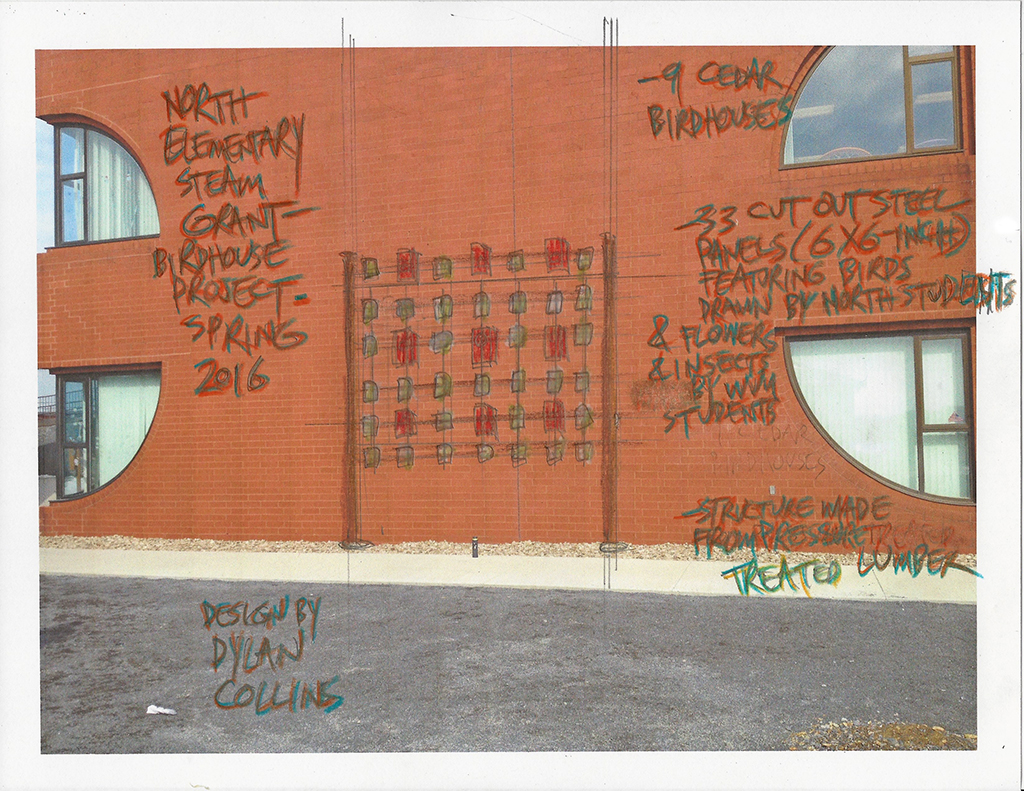 NORTH
ELEMENTARY
STEAM
GRANT—
BIRDHOUSE
PROJECT-
SPRING
2016
-9 CEDAR
BIRDHOUSES
-33 CUT OUT STEEL
PANELS (6X6-INCH)
FEATURING BIRDS
DRAWN BY NORTH STUDENTS
& FLOWERS
& INSECTS
BY WVU
STUDENTS
CEDAR
BIRDHOUSES
-STRUCTURE MADE
FROM PRESSURE
TREATED LUMBER
DESIGN BY
DYLAN
COLLINS